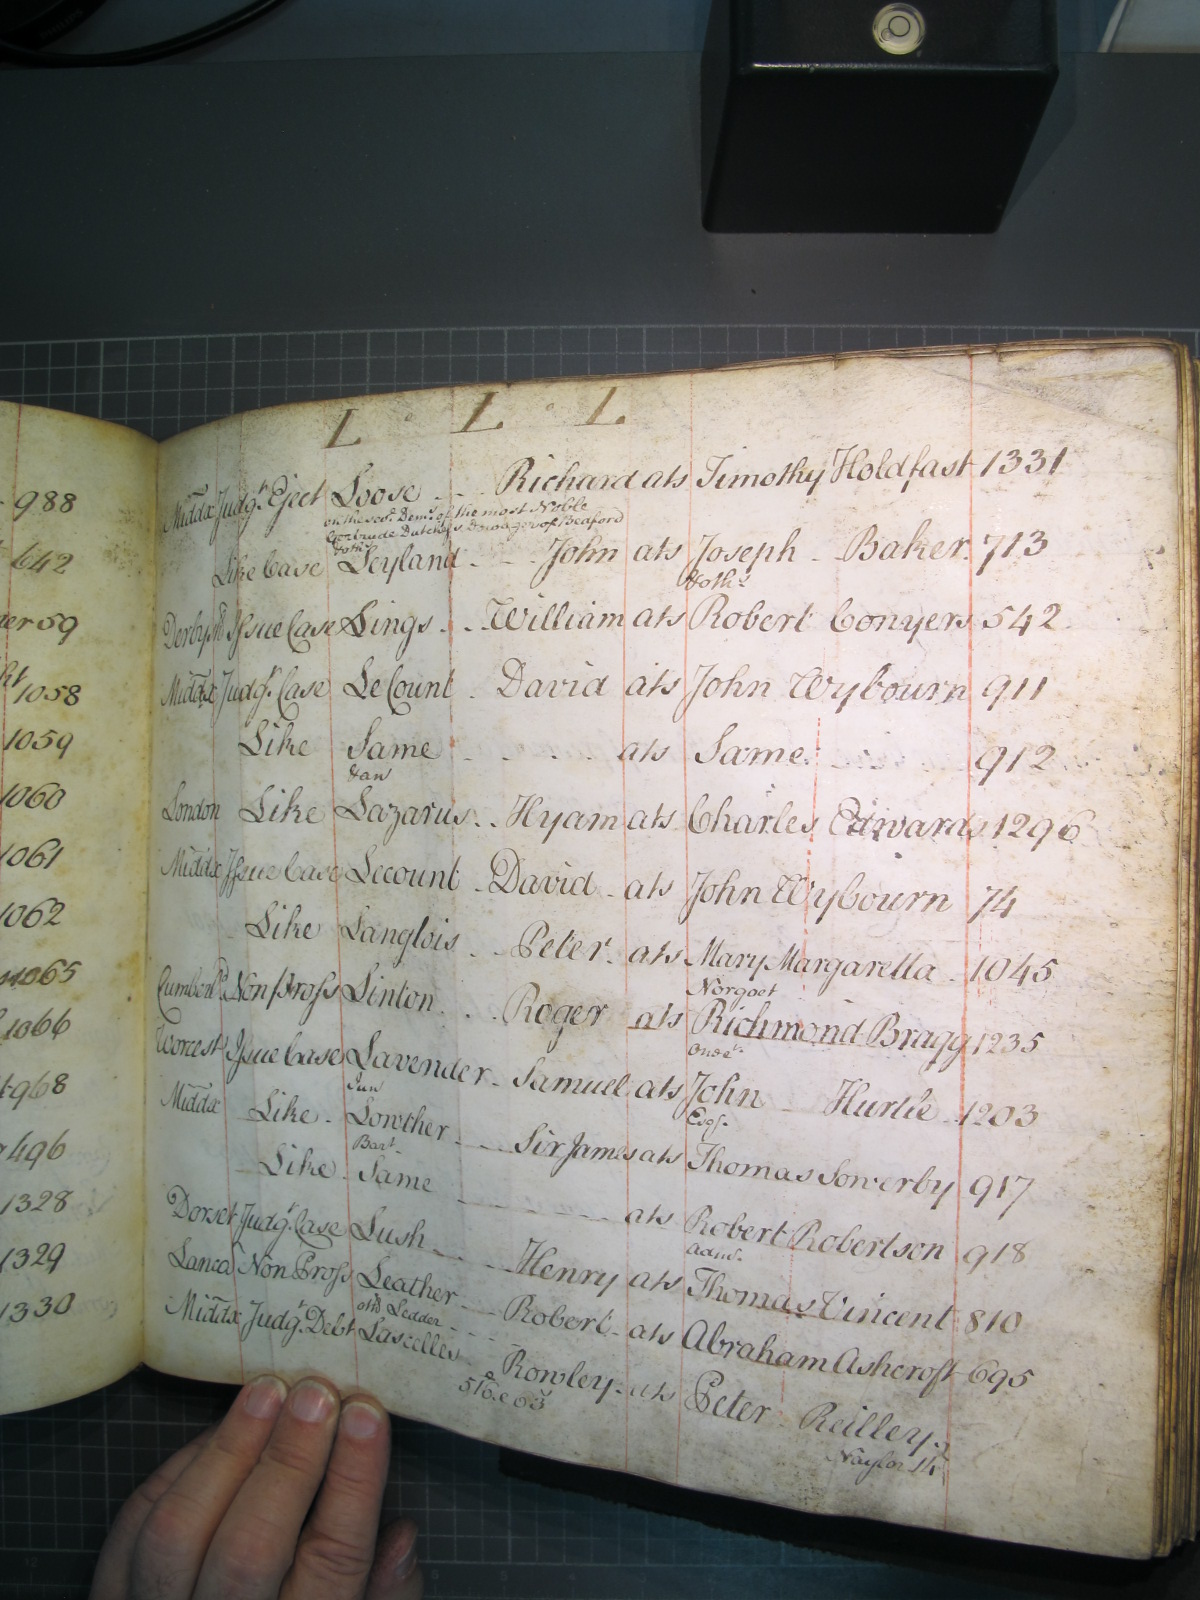 L L L
Middx Judgt. Eject Loose Richard ats Timothy Holdfast 1331
on the sevl. Dems. of the most Noble
Gertrude Dutchess Dowager of Beaford
& oths
Like Case Leyland John ats Joseph Baker 713
& oths
Derbysh Issue Case Lings William ats Robert Conyers 542
Middx Judgt. Case LeCount David ats John Wybourn 911
Like Same ats Same 912
& an
London Like Lazarus Hyam ats Charles Edwards 1296
Middx Issue Case Lecount David ats John Wybourn 74
Like Langlois Peter ats Mary Margaretta 1045
Norgoet
Cumberld. Non pross Linton Roger ats Richmond Bragg 1235
Worcestr Issue Case Lavender Samuel ats John Hurtle 1203
Jun
Esqr.
Middx Like Lowther Sir James ats Thomas Sowerby 917
Bart.
Like Same ats Robert Robertson 918
adms.
Dorset Judgt. Case Lush Henry ats Thomas Vincent 810
Lanca Non Pross Leather Robert ats Abraham Ashcroft 695
ats Ledder
Middx Judgt. Debt Lascelles Rowley ats Peter Reilley
Naylor 14
988
642
59
1058
1059
1060
1061
1062
1065
1066
968
496
1328
1329
1330